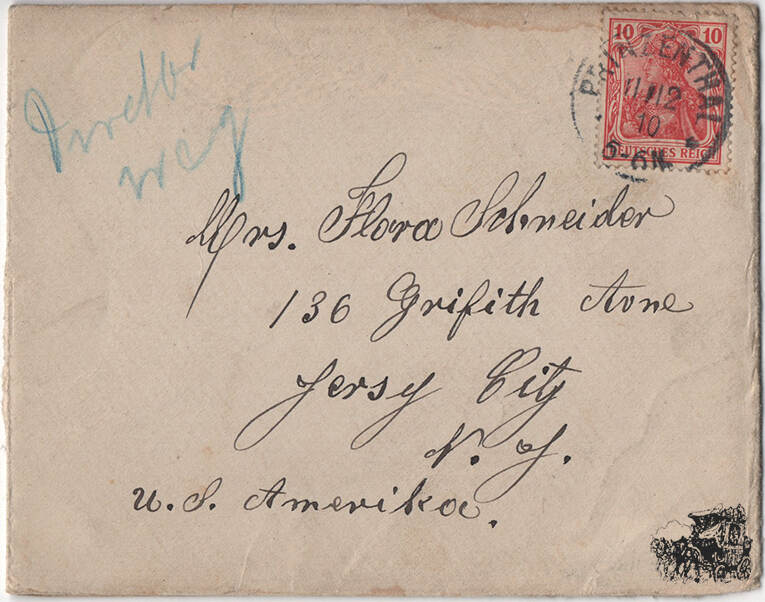 10 10
PRINZENTHAL
11/12
10
5-6N.
DEUTSCHES REICH
Direkter
weg
Mrs. Flora Schneider
136 Grifith Avne
Jersy City
N. J.
U. S. Amerika.